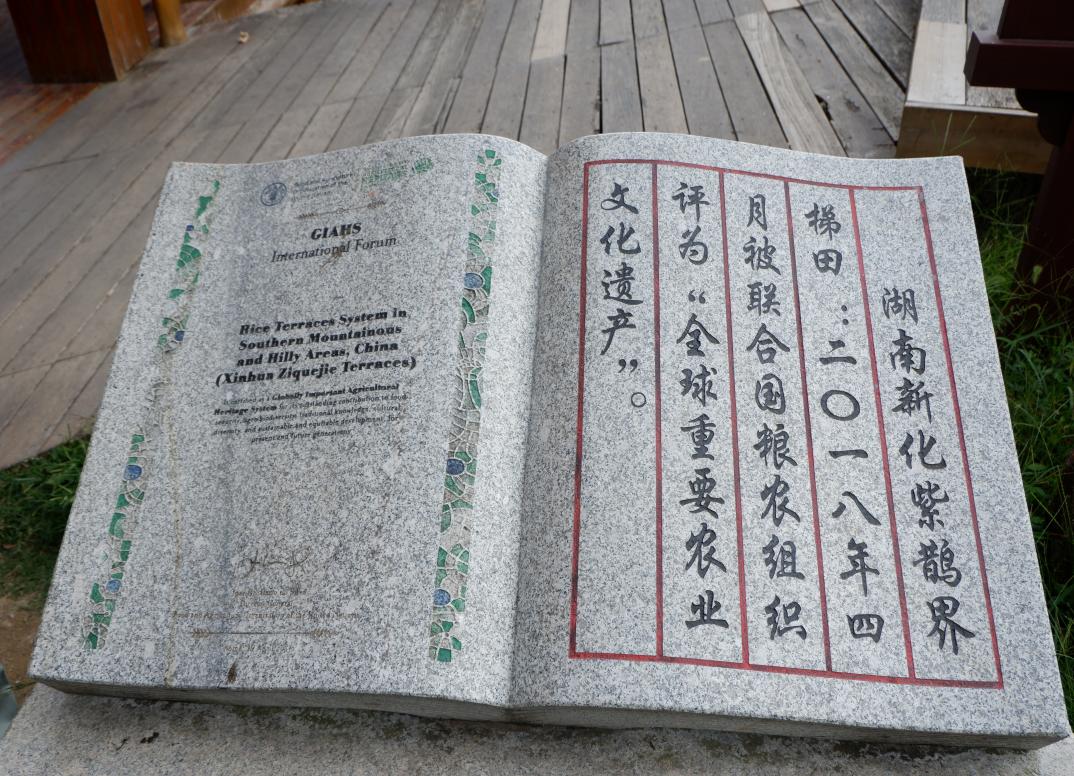 GIAHS
International Forum
Rice Terraces System in
Southern Mountainous
and Hilly Areas, China
(Xinhua Ziquejie Terraces)
is designated as a Globally Important Agricultural
Heritage System for its outstanding contribution to food
security, agro-biodiversity, traditional knowledge, cultural
diversity, and sustainable and equitable development, for
present and future generations.
湖南新化紫鹊界
梯田：二〇一八年四
月被联合国粮农组织
评为“全球重要农业
文化遗产”。